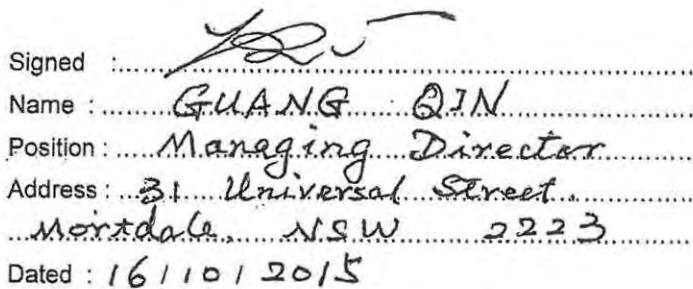 Signed :
Name : GUANG QIN
Position : Managing Director
Address : 31 Universal Street.
Mortdale, NSW 2223
Dated : 16/10/2015